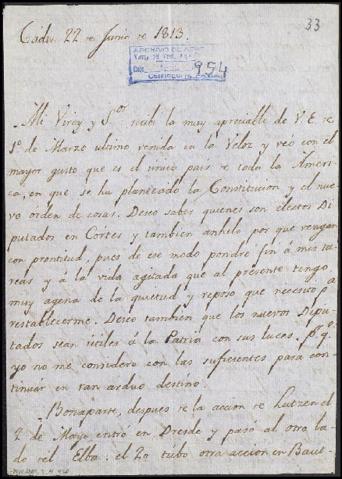 Cadiz 22 de Junio de 1813.
33
ARCHIVO DE
954
Mi Virey y S.or recibi la muy apreciable de V. E. de
1.o de Marzo ultimo venida en la Veloz y veo con el
mayor gusto que es el unico pais de toda la Ameri-
ca, en que se ha planteado la Constitucion y el nue
vo orden de cosas. Deseo saber quienes son electos Di
putados en Cortes y tambien anhelo por que vengan
con prontitud, pues de ese modo pondre fin á mis ta
reas y á la vida agitada que al presente tengo
muy agena de la quietud y reposo que necesito p.a
restablecerme. Deseo tambien que los nuevos Dipu-
tados sean utiles á la Patria con sus luces, p.r q.e
yo no me considero con las suficientes para con-
tinuar en tan arduo destino.
Bonaparte, despues de la accion de Lutzen el
2 de Mayo entró en Dresde y pasó al otro la
do del Elba: el 20 tubo otra accion en Baut-